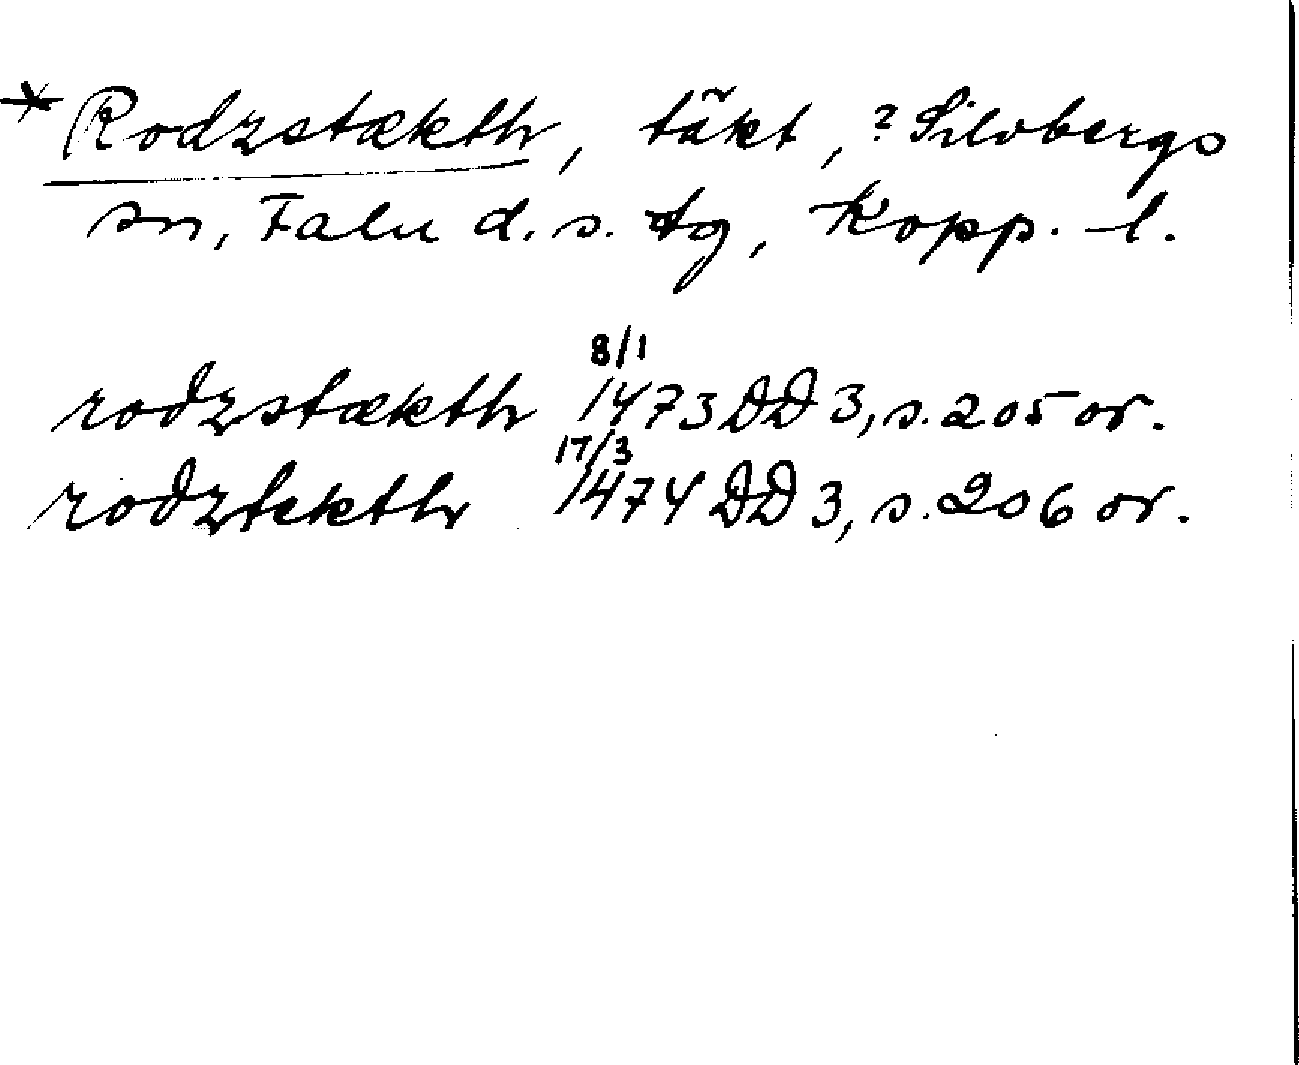 * Rodzstækth, täkt, ? Silvbergs
sn, Falu d. s. tg, Kopp. l.
rodzstækth 8/1 1473 DD 3, s. 205 or.
rodztekth 17/3 1474 DD 3, s. 206 or.